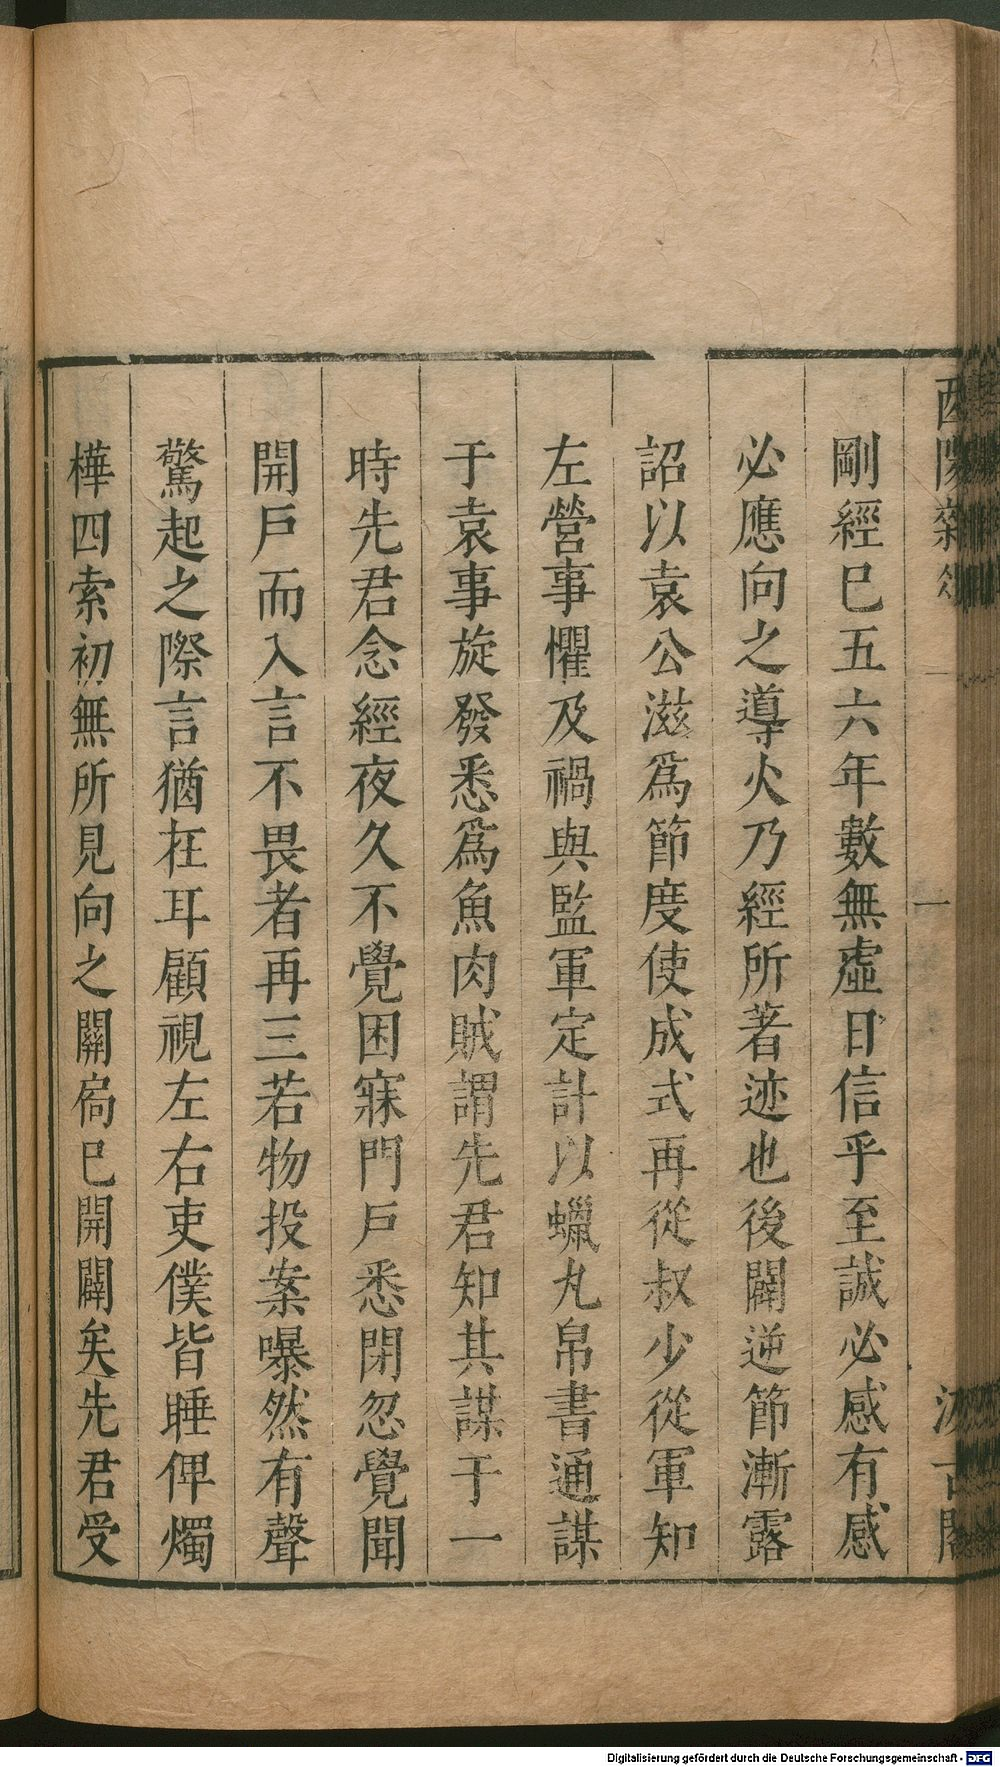 酉陽雜俎
一
汲古閣
剛經已五六年數無虛日信乎至誠必感有感
必應向之導火乃經所著迹也後闢逆節漸露
詔以袁公滋爲節度使成式再從叔少從軍知
左營事懼及禍與監軍定計以蠟丸帛書通謀
于袁事旋發悉爲魚肉賊謂先君知其謀于一
時先君念經夜久不覺困寐門戶悉閉忽覺聞
開戶而入言不畏者再三若物投案曝然有聲
驚起之際言猶在耳顧視左右吏僕皆睡俾燭
樺四索初無所見向之關扃已開闢矣先君受
Digitalisierung gefördert durch die Deutsche Forschungsgemeinschaft - DFG